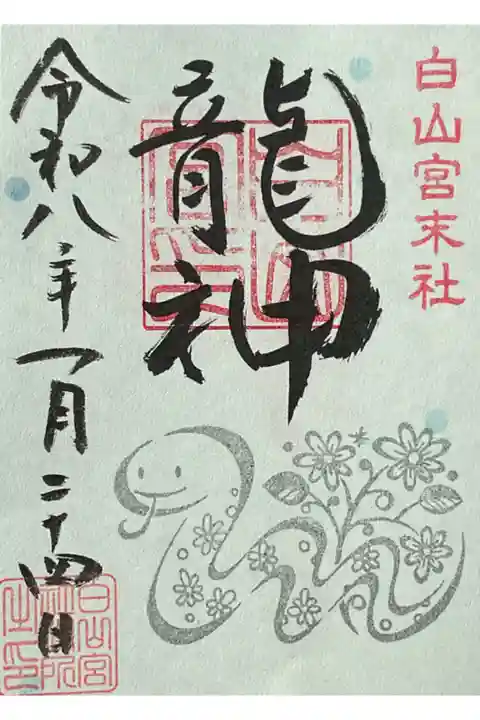 白山宮末社
龍神
令和八年一月二十四日
白山宮